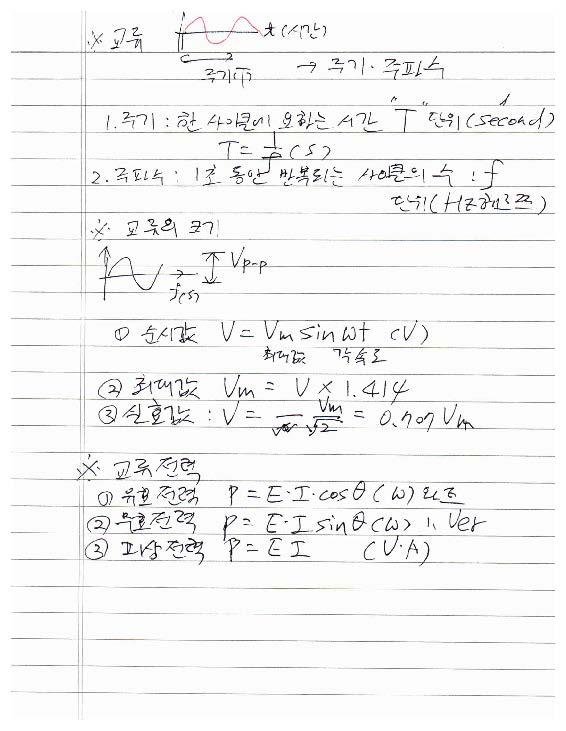 ※ 교류 t (시간)
주기(T) → 주기 · 주파수
1. 주기 : 한 사이클에 요하는 시간 "T" 단위(second)
T = 1/f (s)
2. 주파수 : 1초 동안 반복되는 사이클의 수 : f
단위(Hz헤르쯔)
※ 교류의 크기
Vp-p
f(s)
① 순시값 V = Vm sin wt (V)
최대값 각속도
② 최대값 Vm = V × 1.414
③ 실효값 : V = Vm/√2 = 0.707 Vm
※ 교류전력
① 유효전력 P = E·I·cosθ (W) 와트
② 무효전력 P = E·I sinθ (W) Var
③ 피상전력 P = E I (V·A)